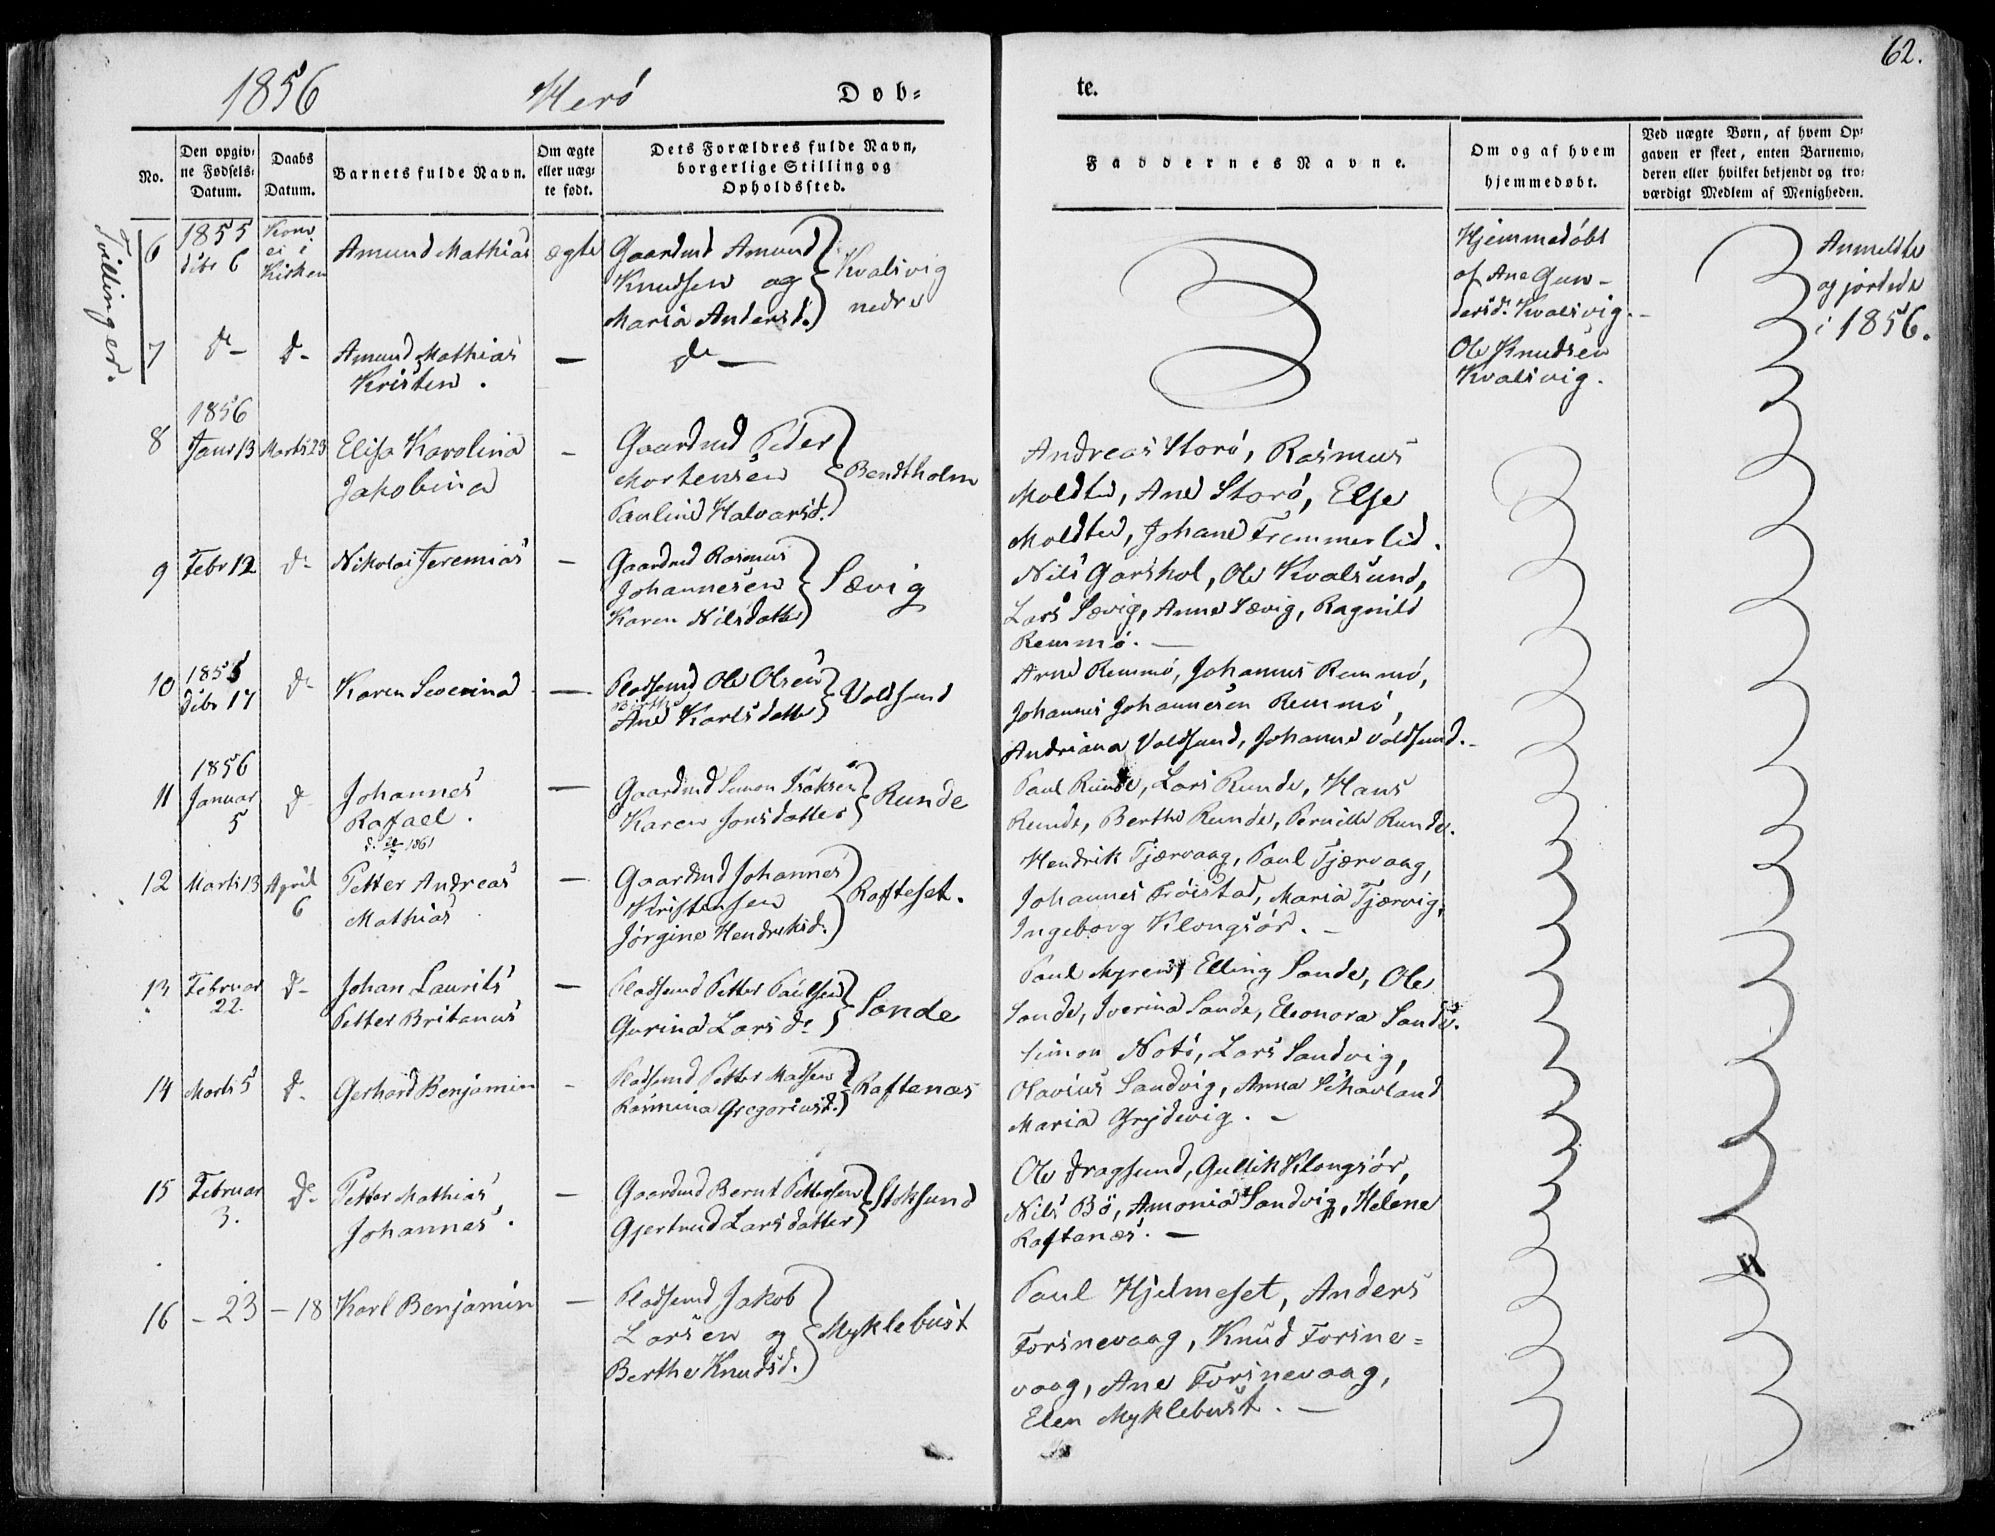 62.
1856 Herö Døb= te.
No.
Den opgiv=
ne Fødsels=
Datum.
Daabs
Datum.
Barnets fulde Navn.
Om ægte
eller uæg=
te født.
Dets Forældres fulde Navn,
borgerlige Stilling og
Opholdssted.
Faddernes Navne.
Om og af hvem
hjemmedøbt.
Ved uægte Børn, af hvem Op=
gaven er skeet, enten Barnemo=
deren eller hvilket bekjendt og tro=
værdigt Medlem af Menigheden.
Tvillinger.
6
1855
Dibr 6
Kom
ei i
Kirken
Amund Mathias
ægte
Gaardmd Amund
Knudsen og
Maria Andersd.
Kvalsvig
nedre
Hjemmedöbt
af Ane Gun-
dersd. Kvalsvig.-
Anmeldte
og jordede
i 1856.
7
do -
do -
Amund Mathias
Kristen .
—
do —
Ole Knudsen
Kvalsvig.
8
1856
Janr 13
Marts 23
Elisa Karolina
Jakobina
-
Gaardmd Peder
Mortensen
Pauline Halvorsd.
Bendtholm
Andreas Storö, Rasmus
Moldtu, Ane Storö, Else
Moldtu, Johane Fremmerlid.
9
Febr 12
do
Nikolai Jeremias
-
Gaardmd Rasmus
Johannesen
Karen Nilsdatter
Sævig
Nils Garshol, Ole Kvalsund,
Lars Sævig, Anne Sævig, Ragnild
Remmö. —
10
1855
Dibr 17
do
Karen Severina
—
Pladsmd Ole Olsen
Berthe
Ane Karlsdatter
Voldsund
Arne Remmö, Johannes Remmö,
Johannes Johannesen Remmö,
Andriana Voldsund, Johanne Voldsund.-
11
1856
Januar
5
do
Johannes
Rafael .
1861
—
Gaardmd Simon Isaksen
Karen Jonsdatter
Runde
Paul Runde, Lars Runde, Hans
Runde, Berthe Runde, Pernille Runde.
12
Marts 13
April
6
Petter Andreas
Mathias
—
Gaardmd Johannes
Kristensen
Jörgine Hendriksd.
Rafteset.
Hendrik Tjærvaag, Paul Tjærvaag,
Johannes Fröistad, Maria Tjærvig,
Ingeborg Klongsör. -
13
Februar
22.
do -
Johan Laurits
Petter Britanus
—
Pladsmd Petter Paulsen
Gurine Lars do
Sande
Paul Myren, Elling Sande, Ole
Sande, Iverina Sande, Eleonora Sande.
14
Marts 5
do
Gerhard Benjamin
-
Pladsmd Petter Madsen
Rasmina Gregoriusd.
Raftenæs
Simon Notö, Lars Sandvig,
Olavius Sandvig, Anna Skavland
Maria Gryddvig. -
15
Februar
3.
do
Petter Mathias
Johannes .
—
Gaardmd Bernt Pettersen
Gjertrud Larsdatter
Stoksund
Ole Dragsund, Gullik Klongsör,
Nils Bö, Amonia Sandvig, Helene
Raftenæs. —
16
- 23
- 18
Karl Benjamin
—
Pladsmd Jakob
Larsen og
Berthe Knudsd.
Myklebust
Paul Hjelmeset, Anders
Torsnevaag, Knud Torsne=
vaag, Ane Torsnevaag,
Elen Myklebust. —